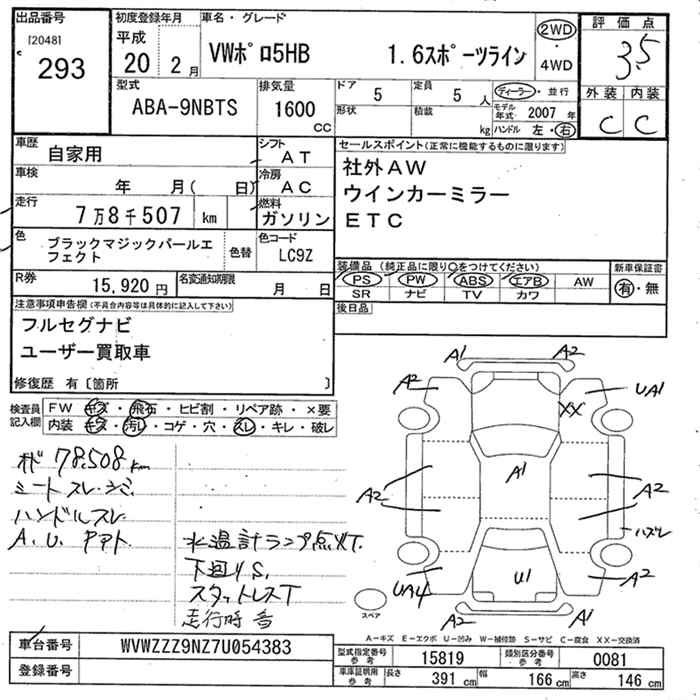 出品番号
[2048]
293
初度登録年月
平成
20 2月
車名・グレード
VWポロ5HB 1.6スポーツライン
2WD
・
4WD
評価点
3.5
外装 内装
C C
型式
ABA-9NBTS
排気量
1600
CC
ドア
5
定員
5 人
形状
積載
kg
ディーラー・並行
モデル年式 2007 年
ハンドル 左・右
車歴
自家用
シフト
AT
車検
年 月( 日)
冷房
AC
走行
7万8千507 km
燃料
ガソリン
色
ブラックマジックパールエ
フェクト
色替
色コード
LC9Z
R券
15,920円
名変通知期限
月 日
セールスポイント(正常に機能するものに限ります)
社外AW
ウインカーミラー
ETC
装備品(純正品に限り○をつけてください)
PS PW ABS エアB AW
SR ナビ TV カワ
新車保証書
有・無
後日品
注意事項申告欄(不具合内容等は具体的に記入して下さい)
フルセグナビ
ユーザー買取車
修復歴 有〔箇所 〕
検査員
記入欄
FW キズ・飛石・ヒビ割・リペア跡・×要
内装 キズ・汚レ・コゲ・穴・スレ・キレ・破レ
78.508km
シートスレ・シミ
ハンドルスレ
A.U.
水温計ランプ点灯.
下廻りS.
スタットレスT
走行時 音
A1 A2
A2 UA1
XX
A1
A2 A2
ハズレ
UA4 U1 A2
A2 A1
スペア
A-キズ E-エクボ U-凹み W-補修跡 S-サビ C-腐食 XX-交換済
車台番号 WVWZZZ9NZ7U054383
登録番号
型式指定番号参考 15819 類別区分番号参考 0081
車庫証明用参考 長さ 391 cm 幅 166 cm 高さ 146 cm